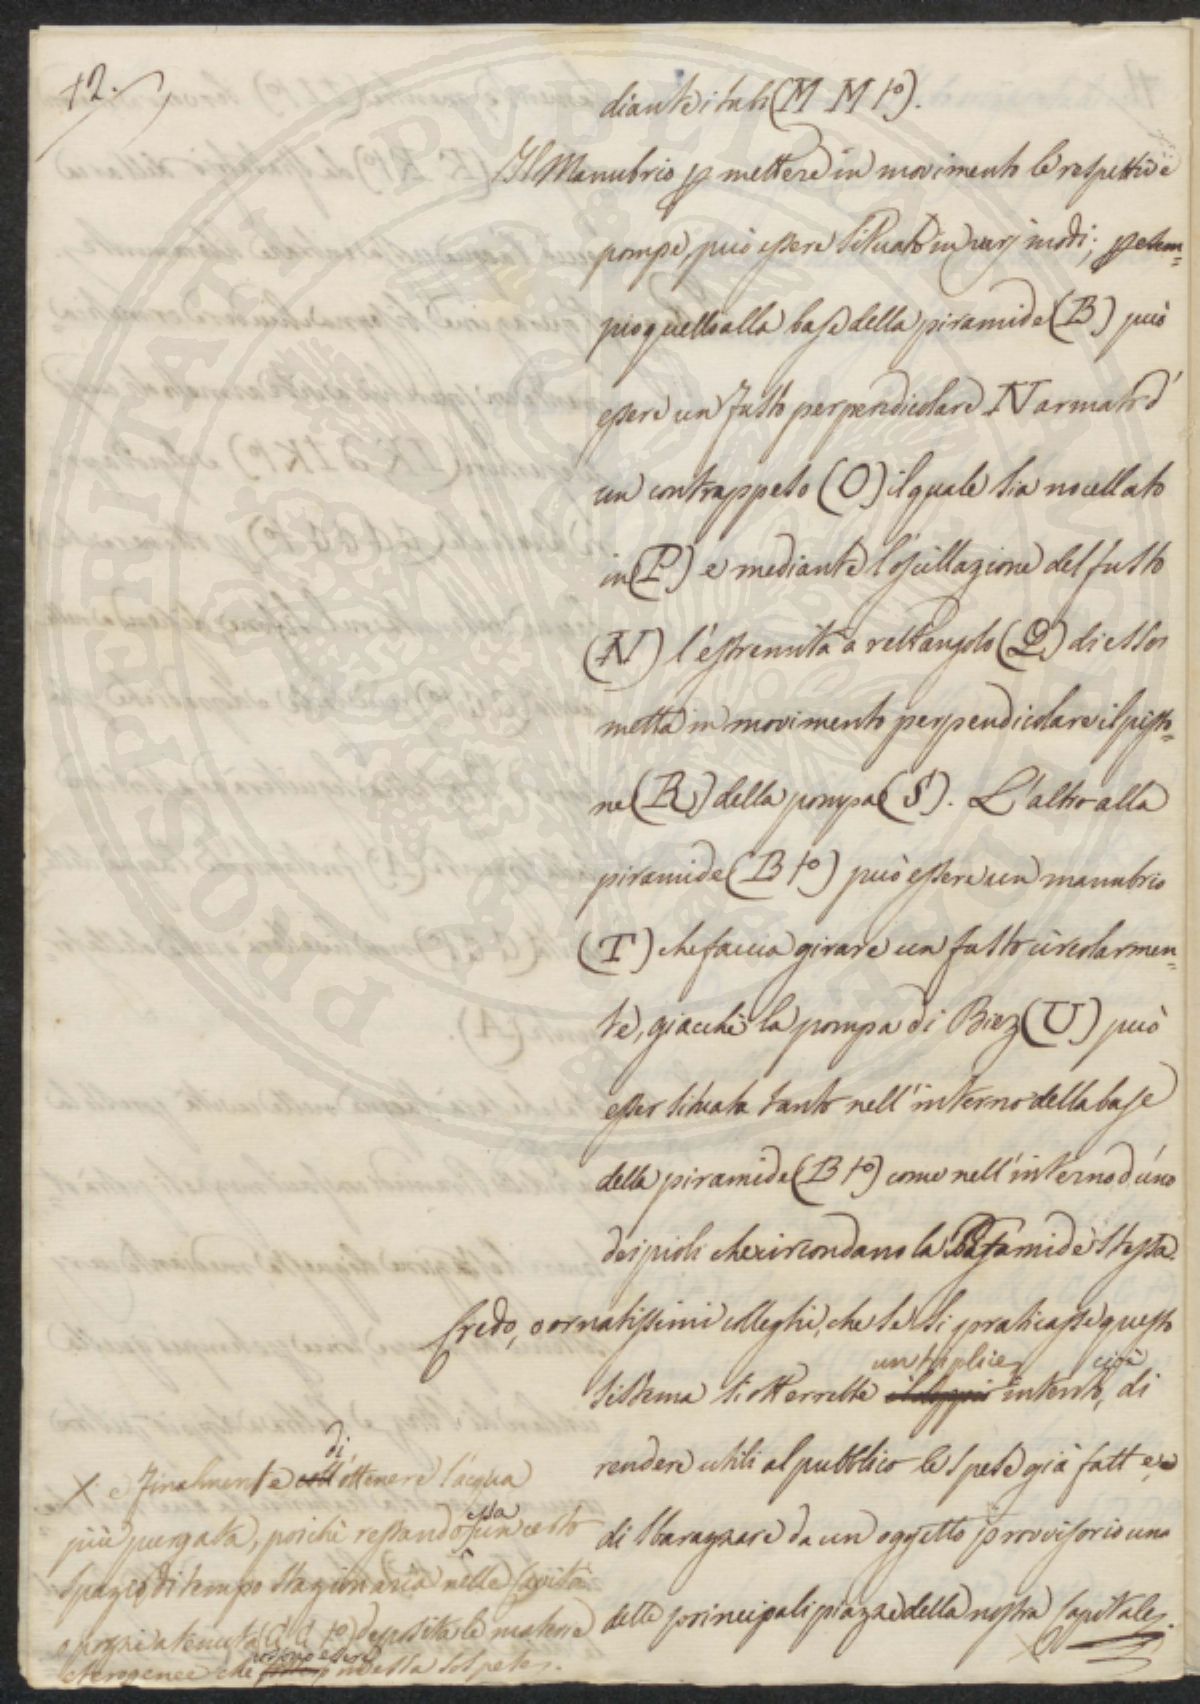 12.
diante i tubi (M M 1º).
Il Manubrio p mettere in movimento le respettive
pompe, può essere situato in varj modi; p esem=
pio quello alla base della piramide (B) può
essere un fusto perpendicolare N armato d'
un contrappeso (O) il quale sia nocellato
in (P) e mediante l'oscillazione del fusto
(N) l'estremità a rettangolo (Q) di esso
metta in movimento perpendicolare il pisto=
ne (R) della pompa (S). L'altro alla
piramide (B 1º) può essere un manubrio
(T) che faccia girare un fusto circolarmen=
te, giacchè la pompa di Biez (U) può
esser situata tanto nell'interno della base
della piramide (B 1º) come nell'interno d'uno
dei pioli che circondano la Piramide stessa.
Credo, o ornatissimi colleghi, che se si praticasse questo
sistema si otterrebbe un triplice intento, cioè di
rendere utili al pubblico le spese già fatte e
di sbarazzare da un oggetto provvisorio una
delle principali piazze della nostra Capitale.
X e finalmente di ottenere l'acqua
più purgata, poichè restando essa un certo
spazio di tempo stazionaria nelle Cavità
a tenuta (C C 1º) deposita le materie
eterogenee che possono essere in essa sospese.
PROSPERITATI PVBLICAE